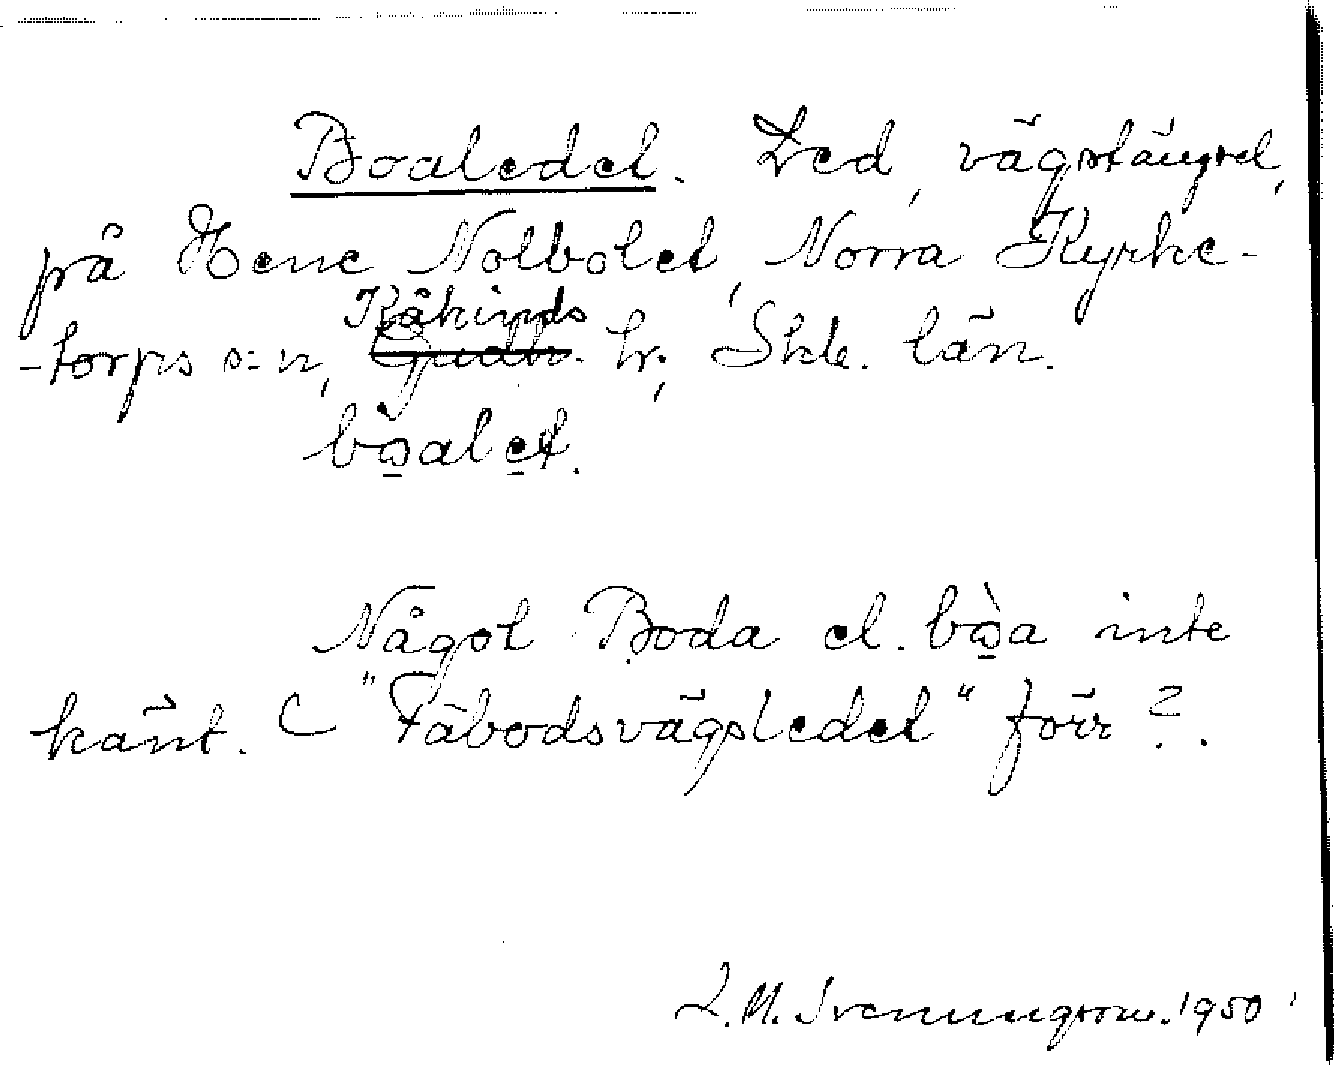 Boaledet. Led, vägstängsel,
på Hene Nolbolet, Norra Kyrke-
Kåkinds
-torps s:n, Gudh. hr, Skb. län.
bòalet.
Något Boda el. bòa inte
känt. "Fäbodsvägsledet" förr?.
L.M. Svenungsson. 1950